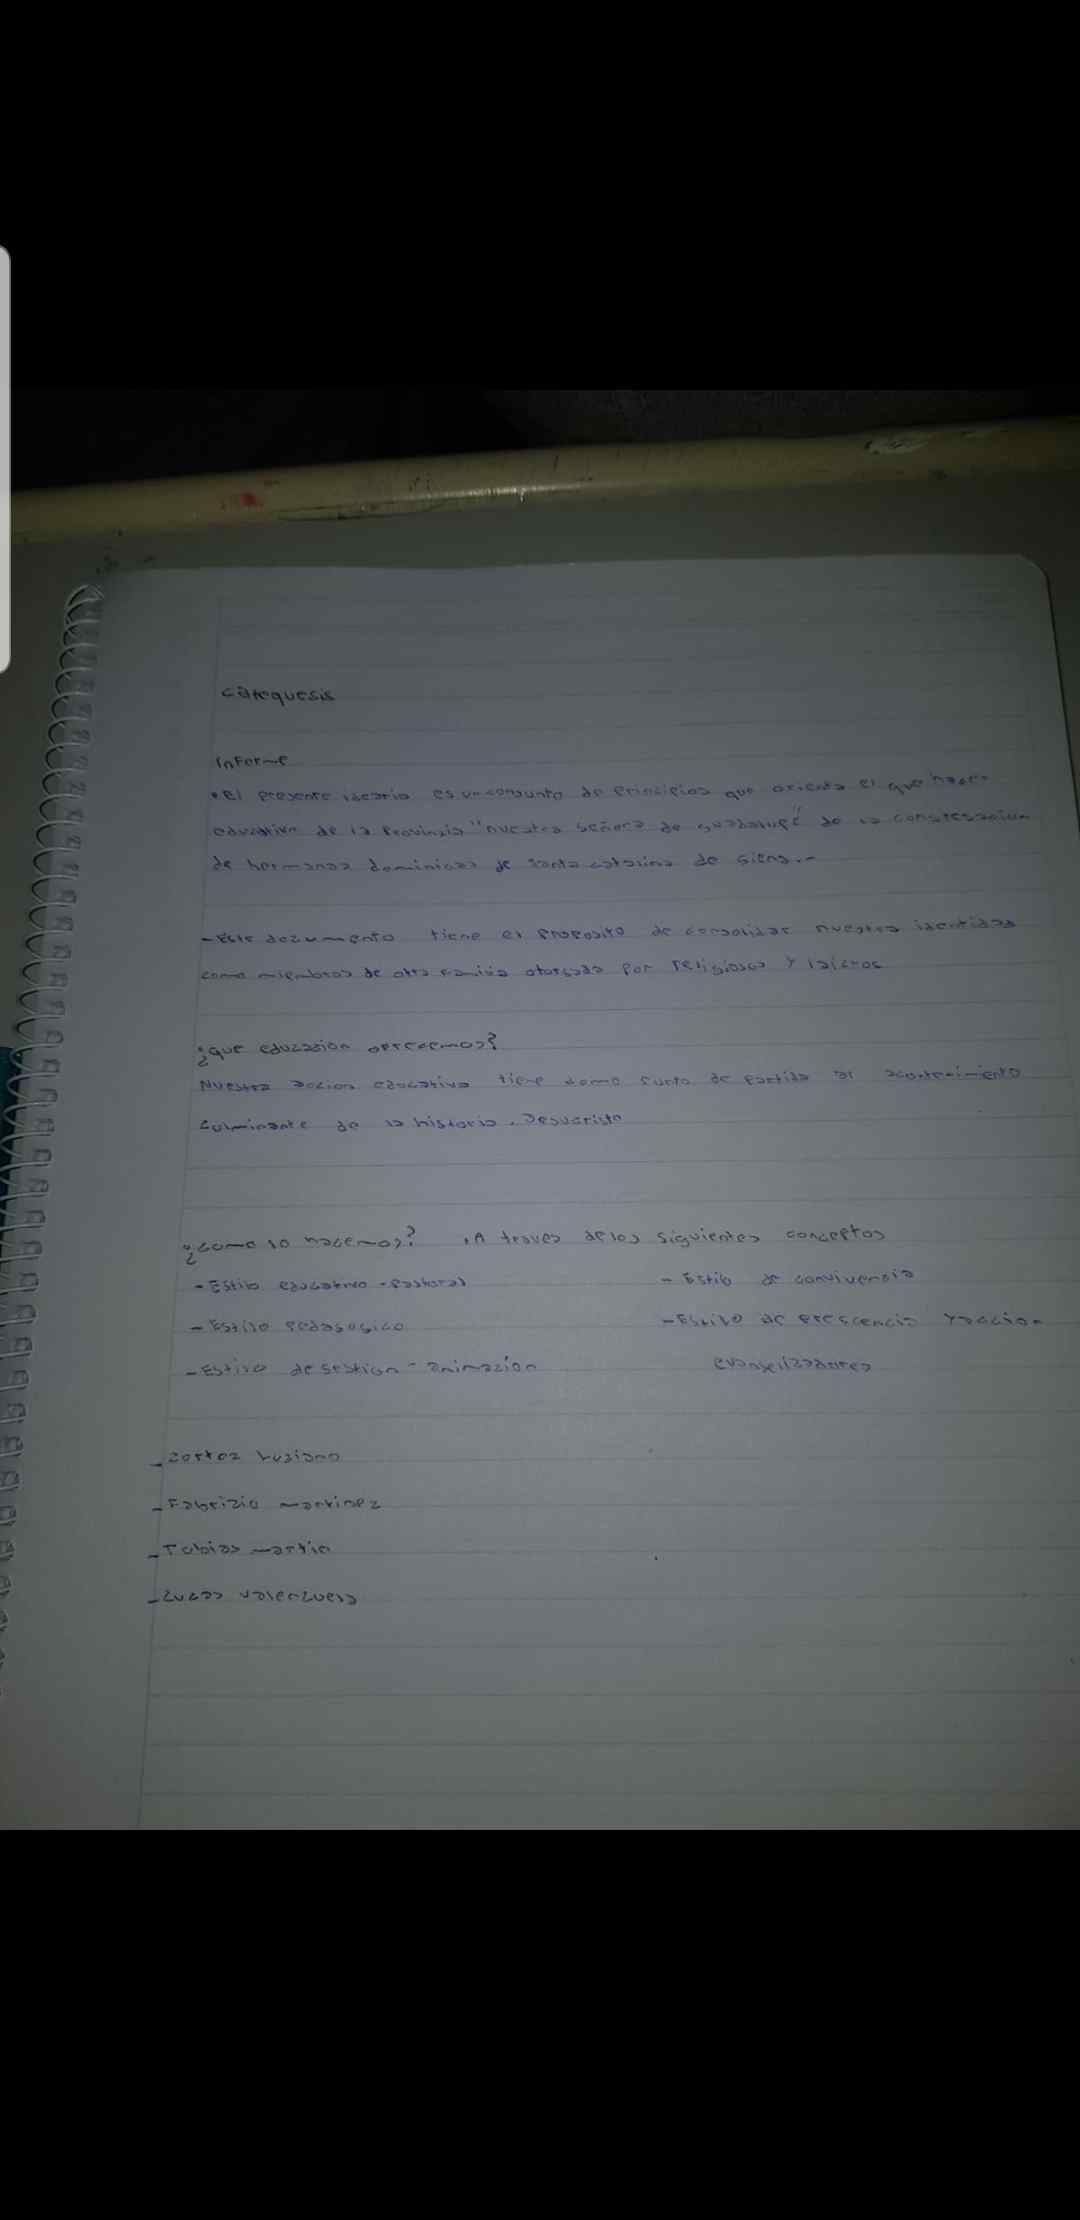 Catequesis
Informe
• El presente ideario es un conjunto de principios que orienta el que hacer
educativo de la Provincia "nuestra señora de guadalupe" de la congregacion
de hermanas dominicas de santa catalina de siena.-
- Este documento tiene el proposito de consolidar nuestra identidad
como miembros de otra familia otorgada por religiosos y laicos
¿que educacion ofrecemos?
Nuestra accion educativa tiene como punto de partida al acontecimiento
culminante de la historia. Jesucristo
¿como lo hacemos? . A traves de los siguientes conceptos
- Estilo educativo - pastoral - Estilo de convivencia
- Estilo Pedagogico - Estilo de prescencia y accion
- Estilo de gestion - animacion evangelizadores
- Cortez Luciano
- Fabrizio martinez
- Tobias martin
- Lucas valenzuela